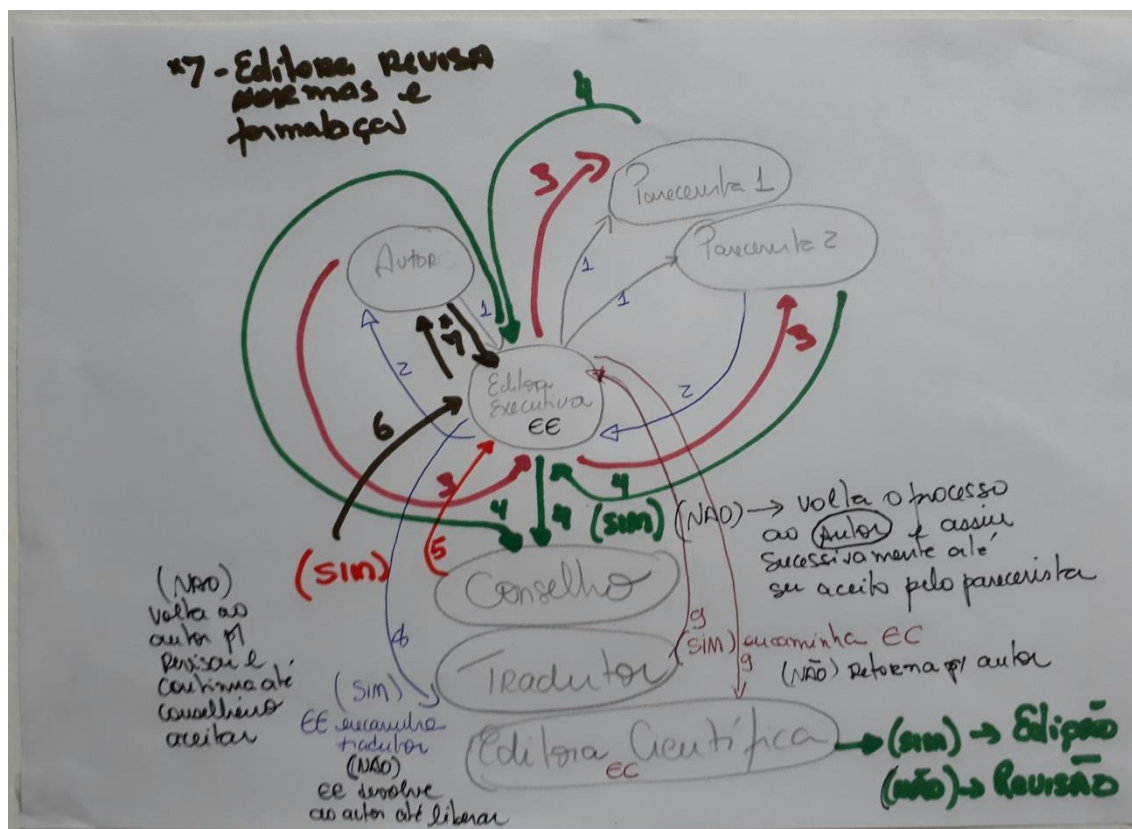 *7 - Editora REVISA
NORMAS e
formatação
4
3
Parecerista 1
Parecerista 2
Autor
1
1
1
*7
2
2
3
Editora
Executiva
EE
6
3
5
4
4
4
(SIM)
(NÃO) → volta o processo
ao Autor e assim
sucessivamente até
ser aceito pelo parecerista
(SIM)
Conselho
(NÃO)
volta ao
autor p/
revisar e
continua até
conselheiro
aceitar
8
9
(SIM) encaminha EC
9
(NÃO) Retorna p/ autor
Tradutor
(SIM)
EE encaminha
tradutor
(NÃO)
EE devolve
ao autor até liberar
Editora Científica
EC
(SIM) → Edição
(NÃO) → REVISÃO